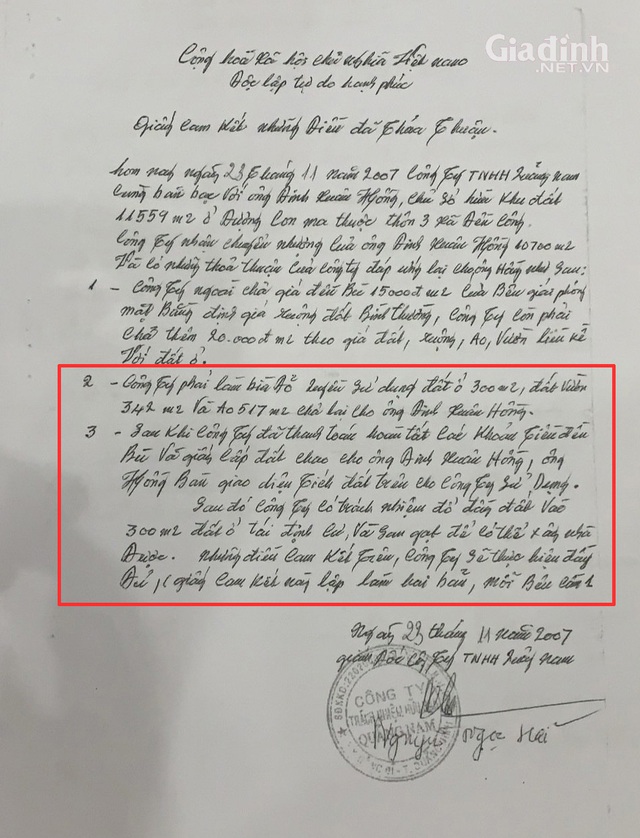 Giadình
.NET.VN
Cộng hoà xã hội chủ nghĩa Việt nam
Độc lập tự do hạnh phúc
Giấy Cam Kết những Điều đã Thỏa Thuận.
hôm nay ngày 23 tháng 11 năm 2007 Công Ty TNHH Quảng nam
cùng bàn bạc với ông Đinh Xuân Hồng, chủ sở hữu khu đất
11559 m2 ở Đường Con ma thuộc thôn 3 xã Đền Công.
Công Ty nhận chuyển nhượng của ông Đinh Xuân Hồng 10700 m2
Và có những thoả thuận của công ty đáp ứng lại cho ông Hồng như sau:
1 - Công Ty ngoài chả giá đền Bù 15000đ m2 của Bên giải phóng
mặt Bằng đúng giá ruộng đất Bình Thường, Công Ty còn phải
chả thêm 20.000đ m2 theo giá đất, ruộng, Ao, Vườn liền kề
Với đất ở.
2 - Công Ty phải làm bìa đỏ quyền sử dụng đất ở 300 m2, đất vườn
342 m2 Và Ao 517 m2 chả lại cho ông Đinh Xuân Hồng.
3 - Sau khi Công Ty đã thanh toán hoàn tất các khoản tiền đền
Bù Và giấy cấp đất chao cho ông Đinh Xuân Hồng, ông
Hồng Bàn giao diện tích đất trên cho Công Ty sử Dụng.
Sau đó Công Ty có trách nhiệm đổ đất Vào
300 m2 đất ở tái định cư, Và san gạt để có thể xây nhà
Được. những điều cam kết trên, Công Ty sẽ thực hiện đầy
Đủ, (giấy cam kết này lập làm hai bản, mỗi Bên cầm 1
Ngày 23 tháng 11 năm 2007
giám đốc Cty TNHH Quảng nam
CÔNG TY
TRÁCH NHIỆM HỮU
QUẢNG NAM
Ngọc Hải